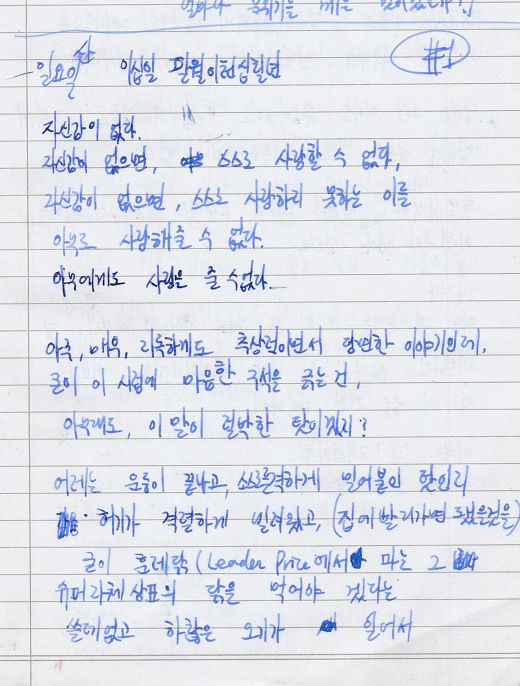 일요일 이십일 팔월 이천십일년
#1
자신감이 없다.
자신감이 없으면, 스스로 사랑할 수 없다,
자신감이 없으면, 스스로 사랑하지 못하는 이를
아무도 사랑해줄 수 없다.
아무에게도 사랑을 줄 수 없다.
아주, 매우, 지독하게도 추상적이면서 당연한 이야기인데,
굳이 이 시점에 마음한 구석을 긁는 건,
아무래도, 이 말이 절박한 탓이겠지?
어제는 운동이 끝나고, 밀어붙인 탓인지
허기가 격렬하게 밀려왔고, (집에 빨리가면 됐을것을)
굳이 훈제닭 (Leader Price에서 파는 그
슈퍼자체상표의 닭을 먹어야 겠다는
쓸데없고 하찮은 오기가 일어서